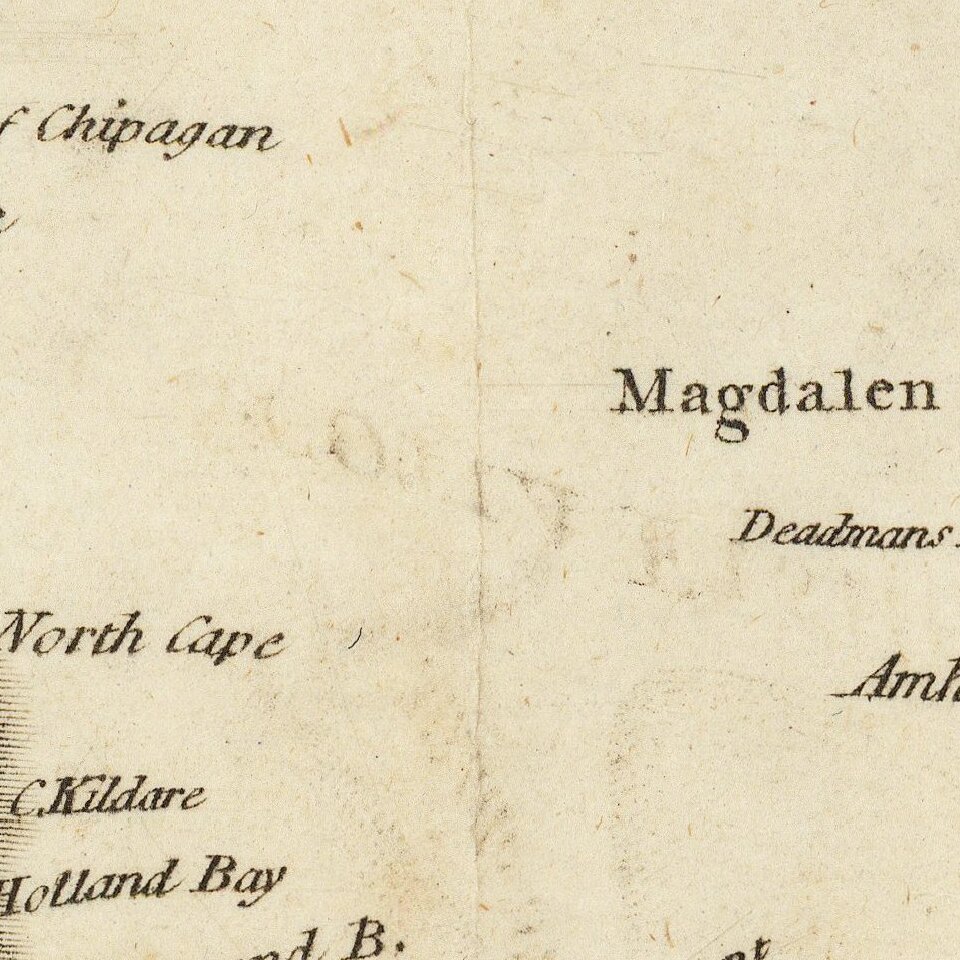 f Chipagan
Magdalen
Deadmans
North Cape
C. Kildare
Holland Bay
B.